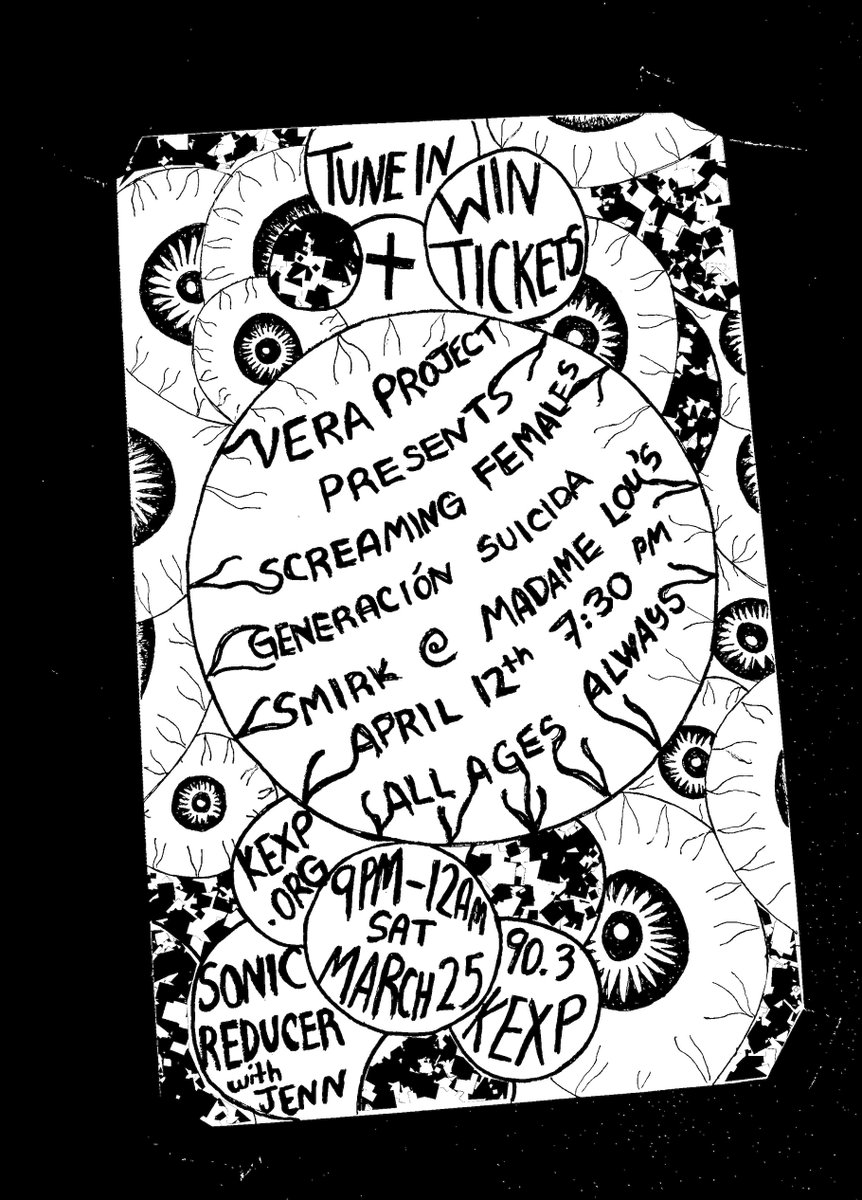 TUNE IN
+
WIN
TICKETS
VERA PROJECT
PRESENTS
SCREAMING FEMALES
GENERACIÓN SUICIDA
SMIRK @ MADAME LOU'S
APRIL 12th 7:30 PM
ALL AGES ALWAYS
KEXP
.ORG
9PM-12AM
SAT
MARCH 25
90.3
KEXP
SONIC
REDUCER
with
JENN